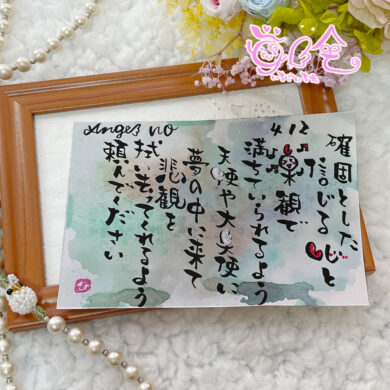 Anges no 412
確固とした
信じる心と
楽観で
満ちていられるよう
天使や大天使に
夢の中に来て
悲観を
拭い去ってくれるよう
頼んでください